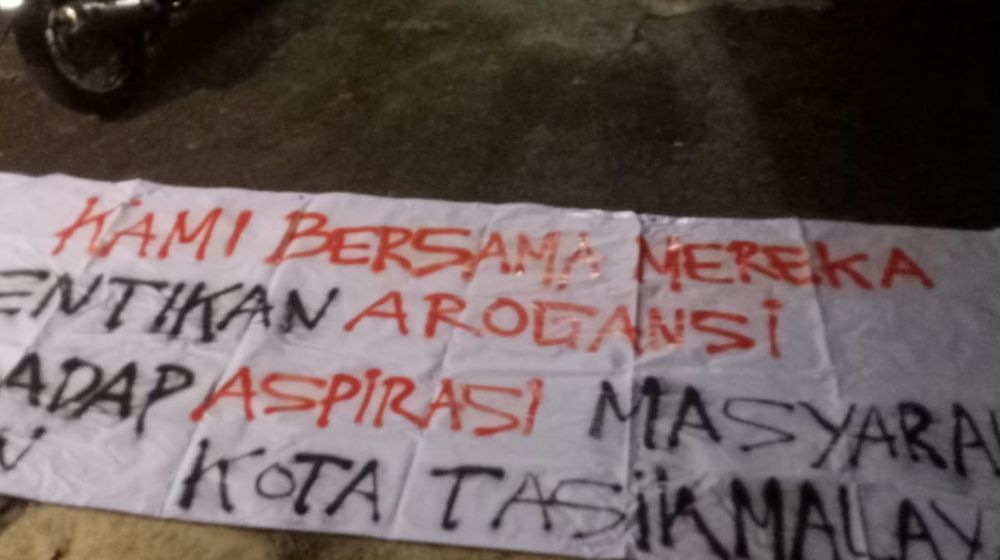 KAMI BERSAMA MEREKA
ENTIKAN AROGANSI
ADAP ASPIRASI MASYARA
KOTA TASIKMALAY